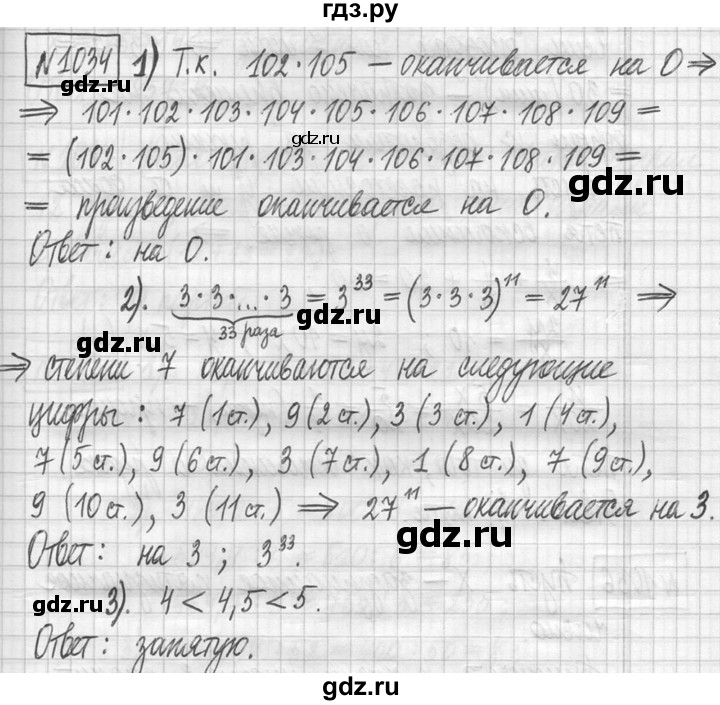 гдз.ру
№1034 1) Т.к. 102·105 – оканчивается на 0 ⇒
⇒ 101·102·103·104·105·106·107·108·109 =
gdz.ru
= (102·105)·101·103·104·106·107·108·109 =
gdz.ru
= произведение оканчивается на 0.
Ответ: на 0.
2). 3·3·...·3 = 3³³ = (3·3·3)¹¹ = 27¹¹ ⇒
33 раза
gdz.ru
gdz.ru
⇒ степени 7 оканчиваются на следующие
цифры: 7 (1ст.), 9 (2 ст.), 3 (3 ст.), 1 (4ст.),
7 (5 ст.), 9 (6 ст.), 3 (7ст.), 1 (8 ст.), 7 (9ст.),
9 (10 ст.), 3 (11 ст.) ⇒ 27¹¹ – оканчивается на 3.
gdz.ru
Ответ: на 3; 3³³.
gdz.ru
3). 4 < 4,5 < 5.
Ответ: запятую.
gdz.ru
gdz.ru